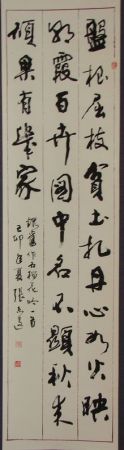 盤根屈枝貧土扎丹心如火映
朝霞百卉園中名不顯秋來
碩果有幾家
錄舊作石榴花吟一首
己卯夏張